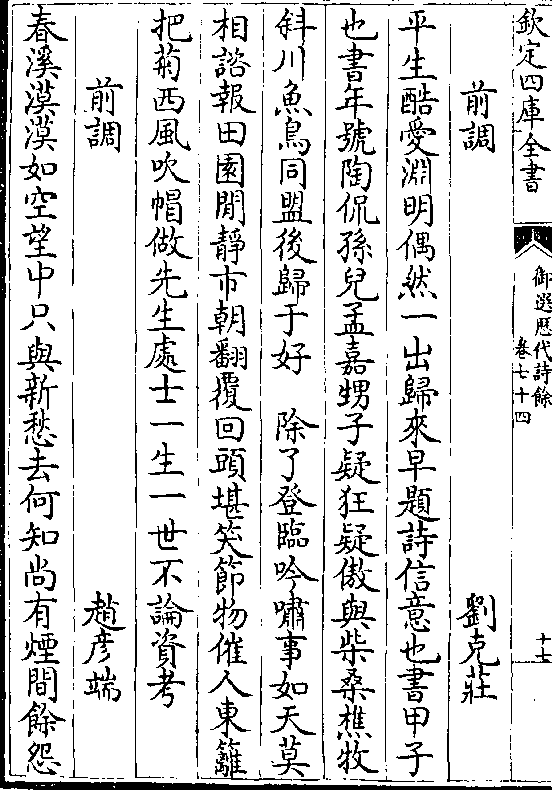 欽定四庫全書
御選歷代詩餘
卷七十四
十七
前調 劉克莊
平生酷愛淵明偶然一出歸來早題詩信意也書甲子
也書年號陶侃孫兒孟嘉甥子疑狂疑傲與柴桑樵牧
斜川魚鳥同盟後歸于好 除了登臨吟嘯事如天莫
相諮報田園閒靜市朝翻覆回頭堪笑節物催人東籬
把菊西風吹帽做先生處士一生一世不論資考
前調 趙彦端
春溪漠漠如空望中只與新愁去何知尚有煙間餘怨